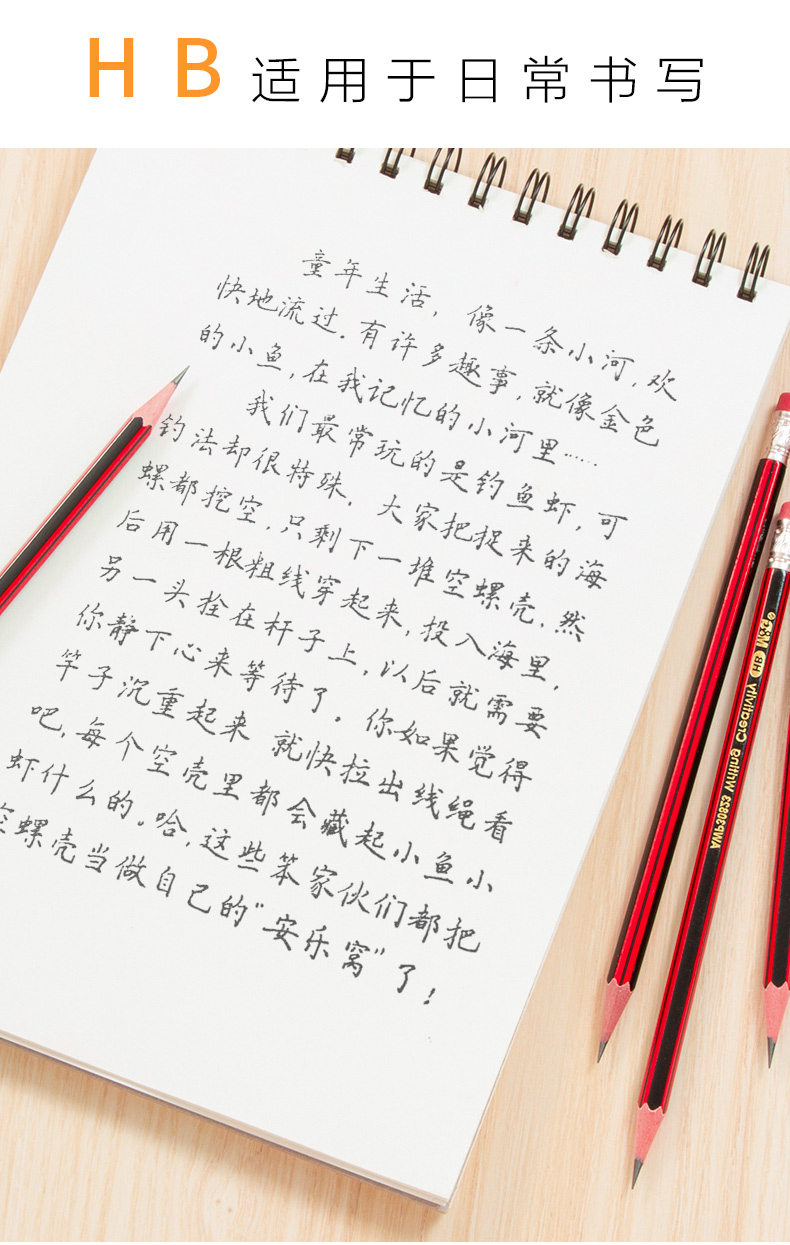 HB 适用于日常书写
童年生活，像一条小河，欢
快地流过．有许多趣事，就像金色
的小鱼，在我记忆的小河里……
我们最常玩的是钓鱼虾，可
钓法却很特殊，大家把捉来的海
螺都挖空，只剩下一堆空螺壳，然
后用一根粗线穿起来，投入海里，
另一头拴在杆子上，以后就需要
你静下心来等待了。你如果觉得
竿子沉重起来 就快拉出线绳看
吧，每个空壳里都会藏起小鱼小
虾什么的。哈，这些笨家伙们都把
空螺壳当做自己的“安乐窝”了！
AWP30823 Writing Creativity HB M&G